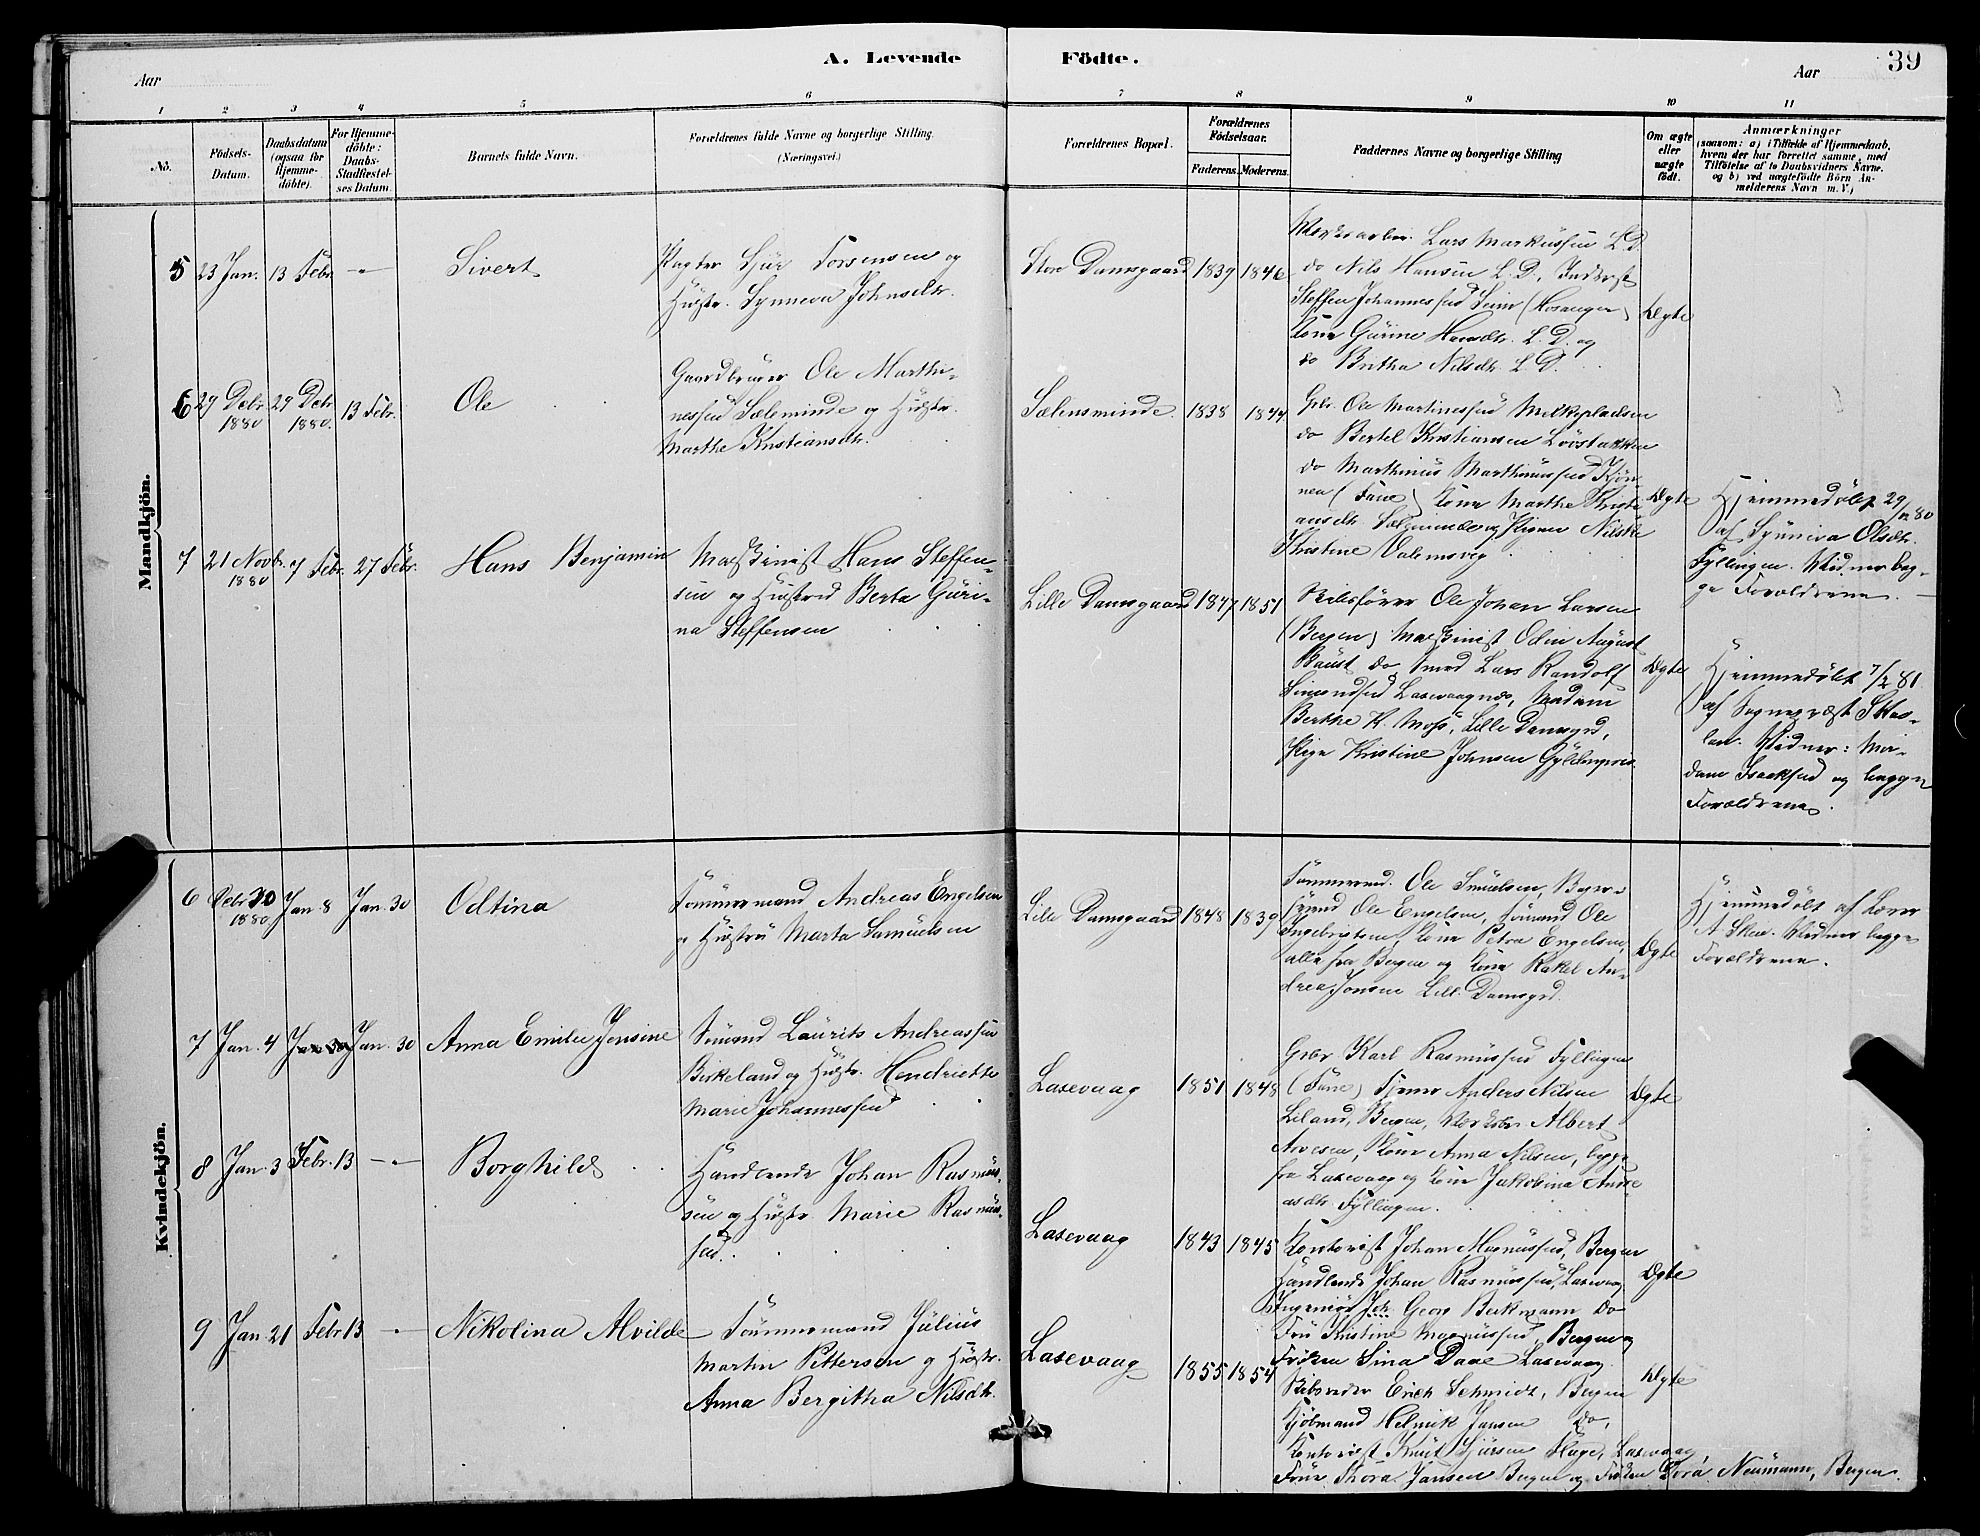 A. Levende Födte. 39
Aar Aar
1 2 3 4 5 6 7 8 9 10 11
No.
Födsels-
Datum.
Daabsdatum
(ogsaa for
Hjemme-
döbte).
For Hjemme-
döbte:
Daabs-
Stadfæstel-
ses Datum.
Barnets fulde Navn.
Forældrenes fulde Navne og borgerlige Stilling.
(Næringsvei.)
Forældrenes Bopæl.
Forældrenes
Födselsaar.
Faderens. Moderens.
Faddernes Navne og borgerlige Stilling
Om ægte
eller
uægte
födt.
Anmærkninger
(saasom: a) i Tilfælde af Hjemmedaab,
hvem der har forrettet samme, med
Tilföielse af to Daabsvidners Navne.
og b) ved uægtefödte Börn An-
melderens Navn m. V.)
Mandkjön.
5 23 Jan. 13 Febr. — Sivert
Sjur Torsensen og
Hustr. Synneva Johnsdtr.
Store Damsgaard 1839 1846
Lars Markussen L. D.
do Nils Hansen L. D., Inderst
Steffen Johannessen Seim (Hosanger)
Kone Gurine Hansdtr. L. D. og
do Britha Nilsdtr. L. D.
Ægte
6 29 Debr 1880 29 Debr 1880. 13 Febr. Ole
Gaardbruger Ole Marthi-
nessen Sæleminde og Hustr.
Marthe Kristiansdtr.
Sælensminde. 1838 1844
Gbr. Ole Martinessen Melkepladsen
do Bertel Kristiansen Lövstakken
do Marthinus Marthinussen
(Fane) Kone Marthe Kristi-
ansdtr. Sæleminde og Pigen Nilske
Kristine
Ægte
Hjemmedöbt 29/12 80
af Synneva Olsdtr.
Fyllingen. Vidner beg-
ge Forældrene.
7 21 Novbr. 1880 7 Febr. 27 Febr. Hans Benjamin
Maskinist Hans Steffen-
sen og Hustru Berta Guri-
na Steffensen
Lille Damsgaard 1847 1851
Skibsförer Ole Johan Larsen
(Bergen) Maskinist Odin August
do Smed Lars Randolf
Simonsen Laxevaagnæs, Madam
Berthe H. Moss, Lille Damsgrd,
Pige Kristine Johnsen Gyldenpris
Ægte
Hjemmedöbt 7/2 81
af Sognepræst
Vidner: Ma-
dam Isaksen og begge
Forældrene.
Kvindekjön.
6 Debr 30 1880 Jan. 8 Jan. 30 Odtina
Tömmermand Andreas Engelsen
og Hustru Marta Samuelsen
Lille Damsgaard 1848 1839
Tömmermd. Ole
Ole Engelsen, Sömand Ole
Ingebrigtsen, Kone Petra Engelsen,
alle fra Bergen og Kone Rakel An-
drea Jonsen Lill. Damsgrd.
Ægte
Hjemmedöbt af Lærer
A. Skaa. Vidner begge
Forældrene.
7 Jan. 4 Jan. 30 Jan. 30 Anna Emilie Jensine
Sömand Laurits Andreassen
Birkeland og Hustr. Hendriette
Marie Johannessen
Laxevaag 1851 1848
Gbr. Karl Rasmussen Fyllingen
(Fane) Tjener Anders Nilsen
Liland, Bergen, Albert
Arvesen, Kone Anna Nilsen, begge
fra Laxevaag og Kone Jakobina Andre
asdtr. Fyllingen.
Ægte
8 Jan. 3 Febr. 13 — Borghild
Handlende Johan Rasmus-
sen og Hustr. Marie Rasmus-
sen.
Laxevaag 1843 1845
Kontorist Johan Magnussen, Bergen
Handlende Johan Rasmussen, Laxevaag
Ingeniör Joh. Georg Beckmann do
Fru Kristine Magnussen, Bergen og
Fröken Sina Daae Laxevaag.
Ægte
9 Jan. 21 Febr 13 — Nikolina Alvilde
Tömmermand Julius
Martin Pettersen og Hustr.
Anna Bergitha Nilsdtr.
Laxevaag 1855 1854
Skibsreder Erich Schmidt, Bergen
Kjöbmand Helmik Jansen do,
Kontorist Knut Sjursen Fluge, Laxevaag
Frue Thora Jansen Bergen og Fröken Dora Neumann, Bergen.
Ægte